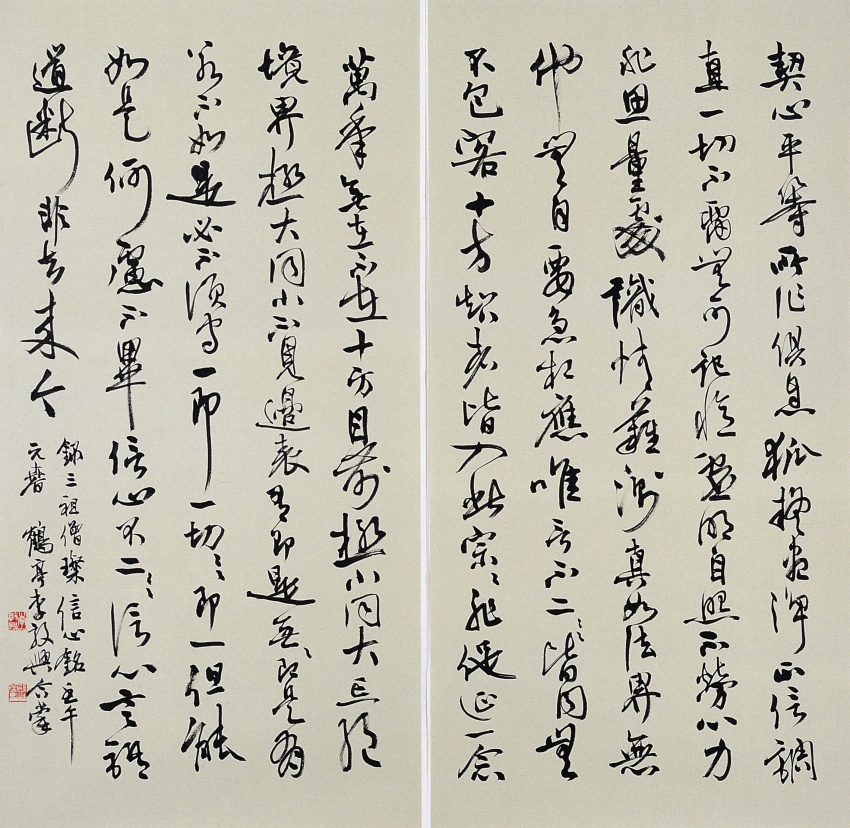 契心平等所作俱息狐疑盡淨正信調
直一切不留無可記憶虛明自照不勞心力
非思量處識情難測真如法界無
他無自要急相應唯言不二〻〻皆同無
不包容十方智者皆入此宗〻非促延一念
萬年無在不在十方目前極小同大忘絕
境界極大同小不見邊表有即是無〻即是有
若不如是必不須守一即一切〻〻即一但能
如是何慮不畢信心不二〻〻信心言語
道斷非去來今
錄三祖僧璨信心銘壬午
元春鶴亭李敦興合掌